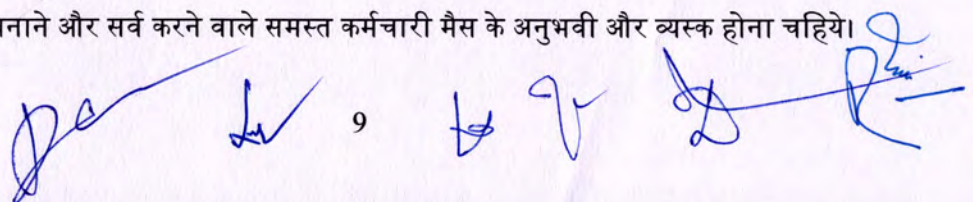 नाने और सर्व करने वाले समस्त कर्मचारी मैस के अनुभवी और व्यस्क होना चहिये।
9